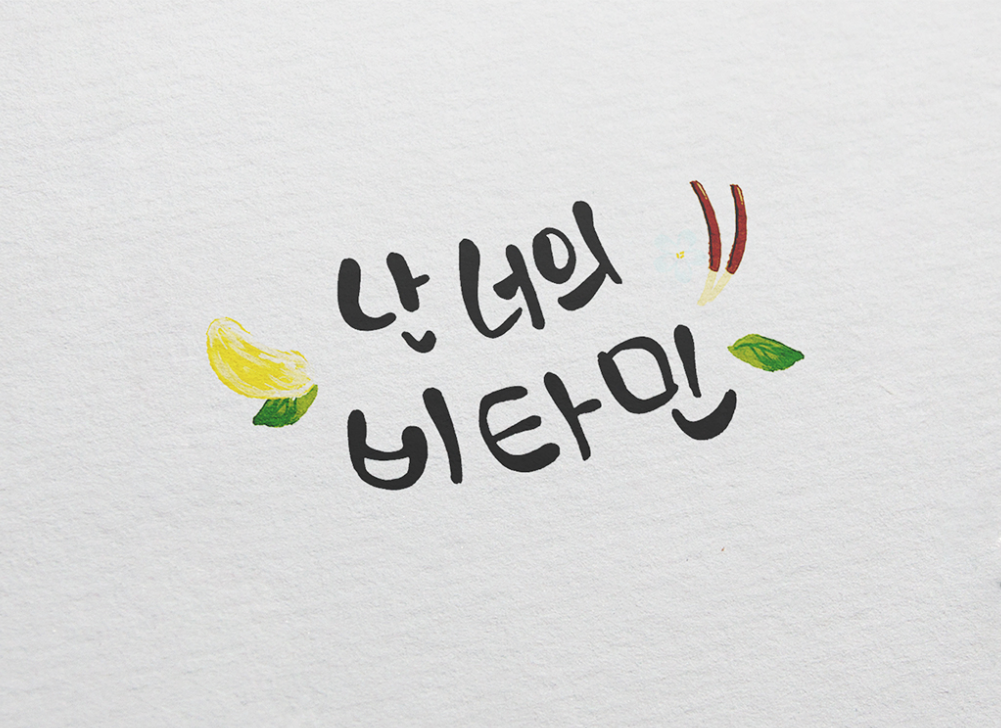 난 너의
비타민